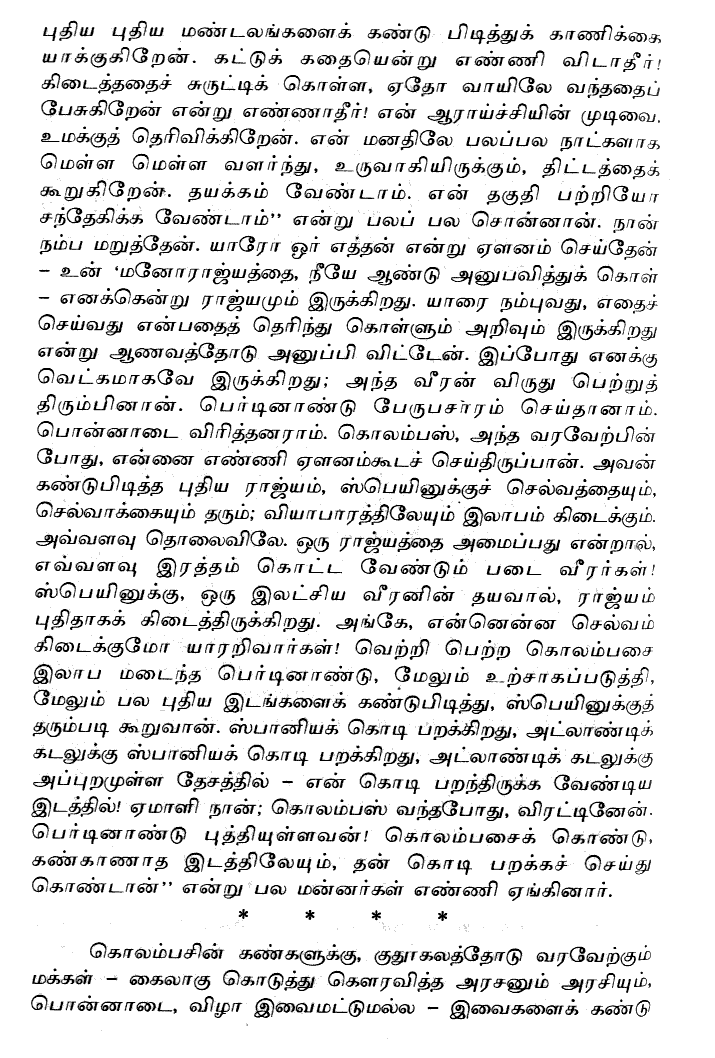 புதிய புதிய மண்டலங்களைக் கண்டு பிடித்துக் காணிக்கை
யாக்குகிறேன். கட்டுக் கதையென்று எண்ணி விடாதீர்!
கிடைத்ததைச் சுருட்டிக் கொள்ள, ஏதோ வாயிலே வந்ததைப்
பேசுகிறேன் என்று எண்ணாதீர்! என் ஆராய்ச்சியின் முடிவை,
உமக்குத் தெரிவிக்கிறேன். என் மனதிலே பலப்பல நாட்களாக
மெள்ள மெள்ள வளர்ந்து, உருவாகியிருக்கும், திட்டத்தைக்
கூறுகிறேன். தயக்கம் வேண்டாம். என் தகுதி பற்றியோ
சந்தேகிக்க வேண்டாம்" என்று பலப் பல சொன்னான். நான்
நம்ப மறுத்தேன். யாரோ ஓர் எத்தன் என்று ஏளனம் செய்தேன்
– உன் 'மனோராஜ்யத்தை, நீயே ஆண்டு அனுபவித்துக் கொள்
– எனக்கென்று ராஜ்யமும் இருக்கிறது. யாரை நம்புவது, எதைச்
செய்வது என்பதைத் தெரிந்து கொள்ளும் அறிவும் இருக்கிறது
என்று ஆணவத்தோடு அனுப்பி விட்டேன். இப்போது எனக்கு
வெட்கமாகவே இருக்கிறது; அந்த வீரன் விருது பெற்றுத்
திரும்பினான். பெர்டினாண்டு பேருபசாரம் செய்தானாம்.
பொன்னாடை விரித்தனராம். கொலம்பஸ், அந்த வரவேற்பின்
போது, என்னை எண்ணி ஏளனம்கூடச் செய்திருப்பான். அவன்
கண்டுபிடித்த புதிய ராஜ்யம், ஸ்பெயினுக்குச் செல்வத்தையும்,
செல்வாக்கையும் தரும்; வியாபாரத்திலேயும் இலாபம் கிடைக்கும்.
அவ்வளவு தொலைவிலே. ஒரு ராஜ்யத்தை அமைப்பது என்றால்,
எவ்வளவு இரத்தம் கொட்ட வேண்டும் படை வீரர்கள்!
ஸ்பெயினுக்கு, ஒரு இலட்சிய வீரனின் தயவால், ராஜ்யம்
புதிதாகக் கிடைத்திருக்கிறது. அங்கே, என்னென்ன செல்வம்
கிடைக்குமோ யாரறிவார்கள்! வெற்றி பெற்ற கொலம்பசை
இலாப மடைந்த பெர்டினாண்டு, மேலும் உற்சாகப்படுத்தி,
மேலும் பல புதிய இடங்களைக் கண்டுபிடித்து, ஸ்பெயினுக்குத்
தரும்படி கூறுவான். ஸ்பானியக் கொடி பறக்கிறது, அட்லாண்டிக்
கடலுக்கு ஸ்பானியக் கொடி பறக்கிறது, அட்லாண்டிக் கடலுக்கு
அப்புறமுள்ள தேசத்தில் – என் கொடி பறந்திருக்க வேண்டிய
இடத்தில்! ஏமாளி நான்; கொலம்பஸ் வந்தபோது, விரட்டினேன்.
பெர்டினாண்டு புத்தியுள்ளவன்! கொலம்பசைக் கொண்டு,
கண்காணாத இடத்திலேயும், தன் கொடி பறக்கச் செய்து
கொண்டான்" என்று பல மன்னர்கள் எண்ணி ஏங்கினார்.
* * * *
கொலம்பசின் கண்களுக்கு, குதூகலத்தோடு வரவேற்கும்
மக்கள் – கைலாகு கொடுத்து கௌரவித்த அரசனும் அரசியும்,
பொன்னாடை, விழா இவைமட்டுமல்ல – இவைகளைக் கண்டு